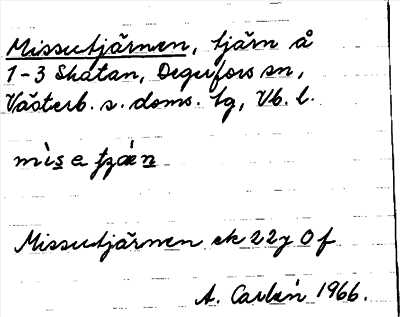 Missutjärnen, tjärn å
1-3 Skatan, Degerfors sn,
Västerb. s. doms. tg, Vb. l.
Missutjärnen ek 22j 0f
A. Carlén 1966.